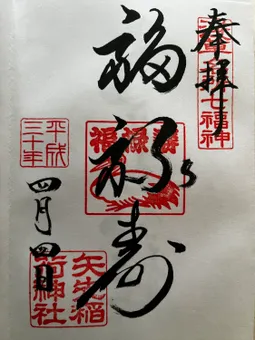 奉拝
七福神
福禄寿
福禄寿
平成
三十年
四月四日
矢先稲
荷神社